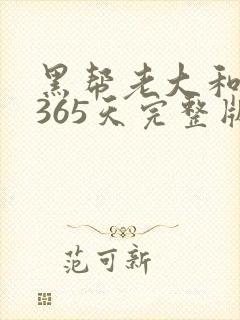 黑帮老大和
365天完整版
范可新